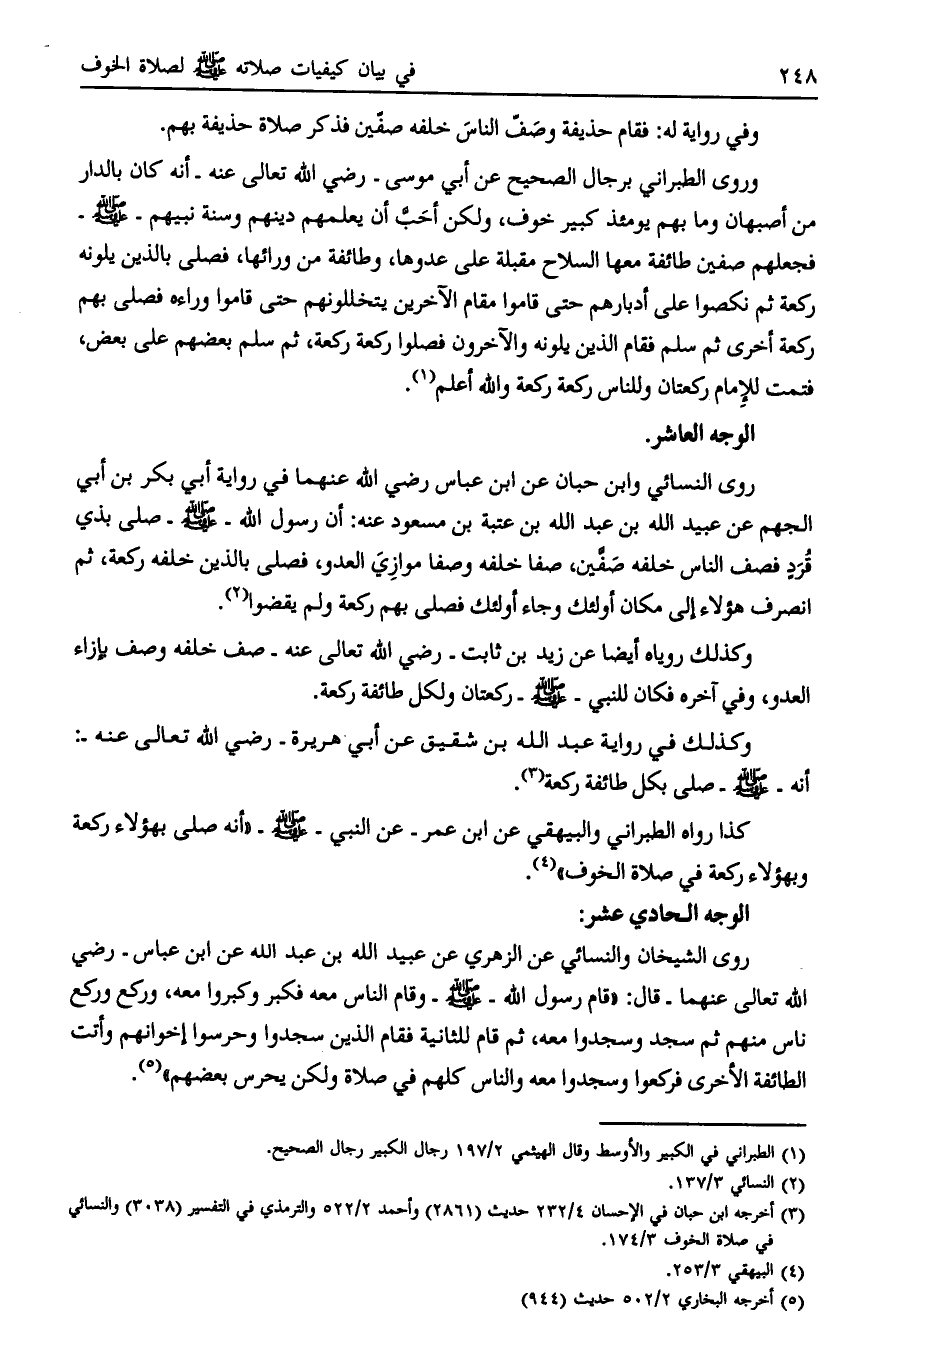 ٢٤٨
في بيان كيفيات صلاته ﷺ لصلاة الخوف
وفي رواية له: فقام حذيفة وصَفّ الناسَ خلفه صفّين فذكر صلاة حذيفة بهم.
وروى الطبراني برجال الصحيح عن أبي موسى ـ رضي الله تعالى عنه ـ أنه كان بالدار
من أصبهان وما بهم يومئذ كبير خوف، ولكن أحَبَّ أن يعلمهم دينهم وسنة نبيهم ـ ﷺ ـ
فجعلهم صفين طائفة معها السلاح مقبلة على عدوها، وطائفة من ورائها، فصلى بالذين يلونه
ركعة ثم نكصوا على أدبارهم حتى قاموا مقام الآخرين يتخللونهم حتى قاموا وراءه فصلى بهم
ركعة أخرى ثم سلم فقام الذين يلونه والآخرون فصلوا ركعة ركعة، ثم سلم بعضهم على بعض،
فتمت للإمام ركعتان وللناس ركعة ركعة والله أعلم(١).
الوجه العاشر.
روى النسائي وابن حبان عن ابن عباس رضي الله عنهما في رواية أبي بكر بن أبي
الجهم عن عبيد الله بن عبد الله بن عتبة بن مسعود عنه: أن رسول الله ـ ﷺ ـ صلى بذي
قُرَدٍ فصف الناس خلفه صَفَّين، صفا خلفه وصفا موازِيَ العدو، فصلى بالذين خلفه ركعة، ثم
انصرف هؤلاء إلى مكان أولئك وجاء أولئك فصلى بهم ركعة ولم يقضوا(٢).
وكذلك روياه أيضا عن زيد بن ثابت ـ رضي الله تعالى عنه ـ صف خلفه وصف بإزاء
العدو، وفي آخره فكان للنبي ـ ﷺ ـ ركعتان ولكل طائفة ركعة.
وكذلك في رواية عبد الله بن شقيق عن أبي هريرة ـ رضي الله تعالى عنه ـ:
أنه ـ ﷺ ـ صلى بكل طائفة ركعة(٣).
كذا رواه الطبراني والبيهقي عن ابن عمر ـ عن النبي ـ ﷺ ـ «أنه صلى بهؤلاء ركعة
وبهؤلاء ركعة في صلاة الخوف»(٤).
الوجه الحادي عشر:
روى الشيخان والنسائي عن الزهري عن عبيد الله بن عبد الله عن ابن عباس ـ رضي
الله تعالى عنهما ـ قال: «قام رسول الله ـ ﷺ ـ وقام الناس معه فكبر وكبروا معه، وركع وركع
ناس منهم ثم سجد وسجدوا معه، ثم قام للثانية فقام الذين سجدوا وحرسوا إخوانهم وأتت
الطائفة الأخرى فركعوا وسجدوا معه والناس كلهم في صلاة ولكن يحرس بعضهم»(٥).
(١) الطبراني في الكبير والأوسط وقال الهيثمي ١٩٧/٢ رجال الكبير رجال الصحيح.
(٢) النسائي ١٣٧/٣.
(٣) أخرجه ابن حبان في الإحسان ٢٣٢/٤ حديث (٢٨٦١) وأحمد ٥٢٢/٢ والترمذي في التفسير (٣٠٣٨) والنسائي
في صلاة الخوف ١٧٤/٣.
(٤) البيهقي ٢٥٣/٣.
(٥) أخرجه البخاري ٥٠٢/٢ حديث (٩٤٤)